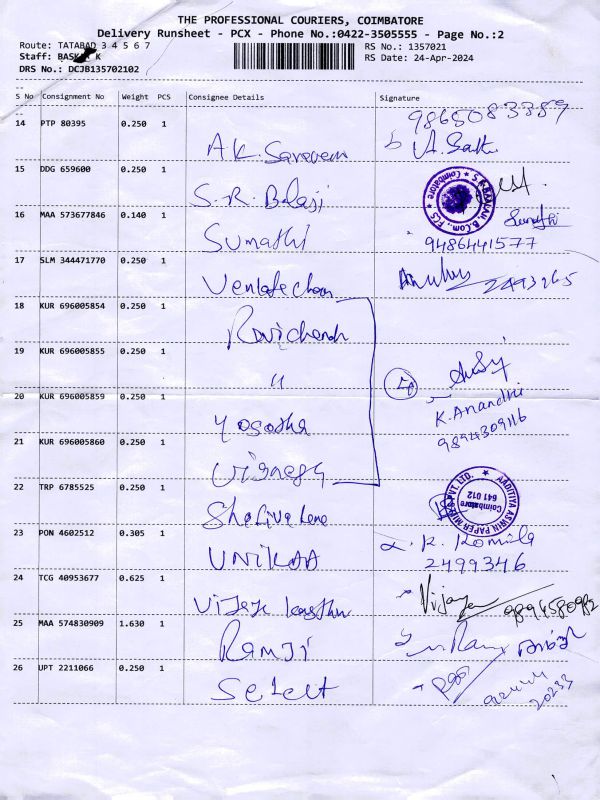 THE PROFESSIONAL COURIERS, COIMBATORE
Delivery Runsheet - PCX - Phone No.:0422-3505555 - Page No.:2
Route: TATABAD 3 4 5 6 7
RS No.: 1357021
Staff: K
RS Date: 24-Apr-2024
DRS No.: DCJB135702102
S No Consignment No Weight PCS Consignee Details Signature
14 PTP 80395 0.250 1
9865083389
A.K. Saravan
15 DDG 659600 0.250 1
S.R. Balaji
Coimbatore
16 MAA 573677846 0.140 1
Sumathi
9486441577
17 SLM 344471770 0.250 1
18 KUR 696005854 0.250 1
19 KUR 696005855 0.250 1
"
20 KUR 696005859 0.250 1
Yosodha
K. Anandhi
9894309116
21 KUR 696005860 0.250 1
22 TRP 6785525 0.250 1
AADITIYA ASWIN PAPER MILLS PVT. LTD.
Coimbatore
641 012
23 PON 4602512 0.305 1
UNIKAA
2499346
24 TCG 40953677 0.625 1
Vijaya
9894580982
25 MAA 574830909 1.630 1
RAMJI
26 UPT 2211066 0.250 1
Select
20233